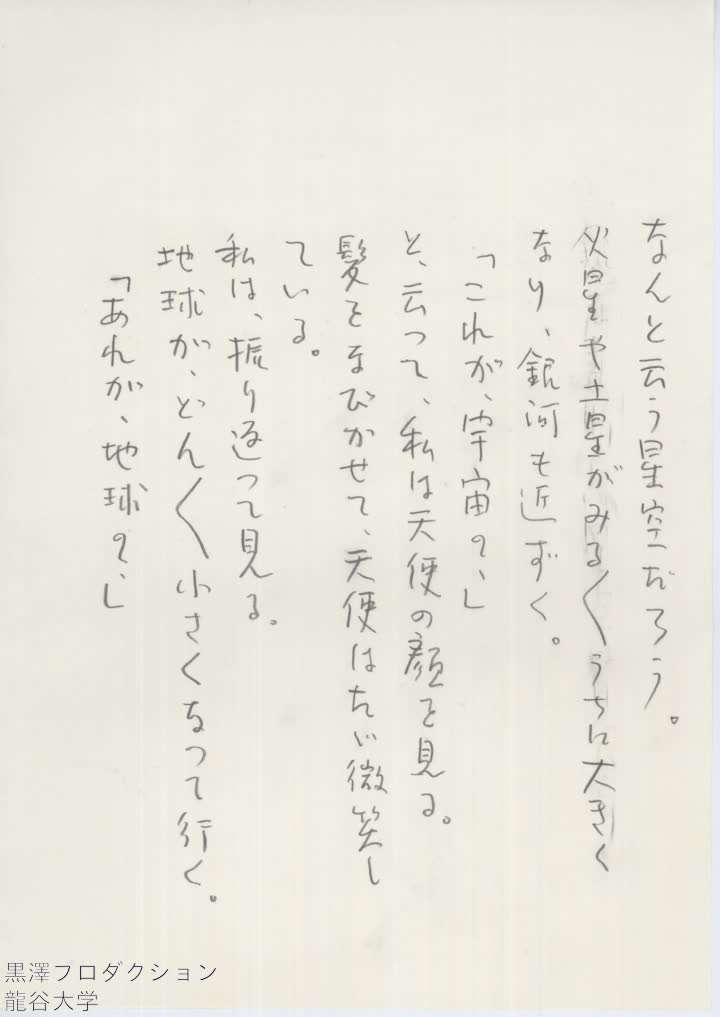 なんと云う星空だろう。
火星や土星がみる〱うちに大きく
なり、銀河も近ずく。
「これが、宇宙の、」
と、云つて、私は天使の顔を見る。
髪をなびかせて、天使はたゞ微笑し
ている。
私は、振り返つて見る。
地球が、どん〱小さくなつて行く。
「あれが、地球の、」
黒澤プロダクション
龍谷大学